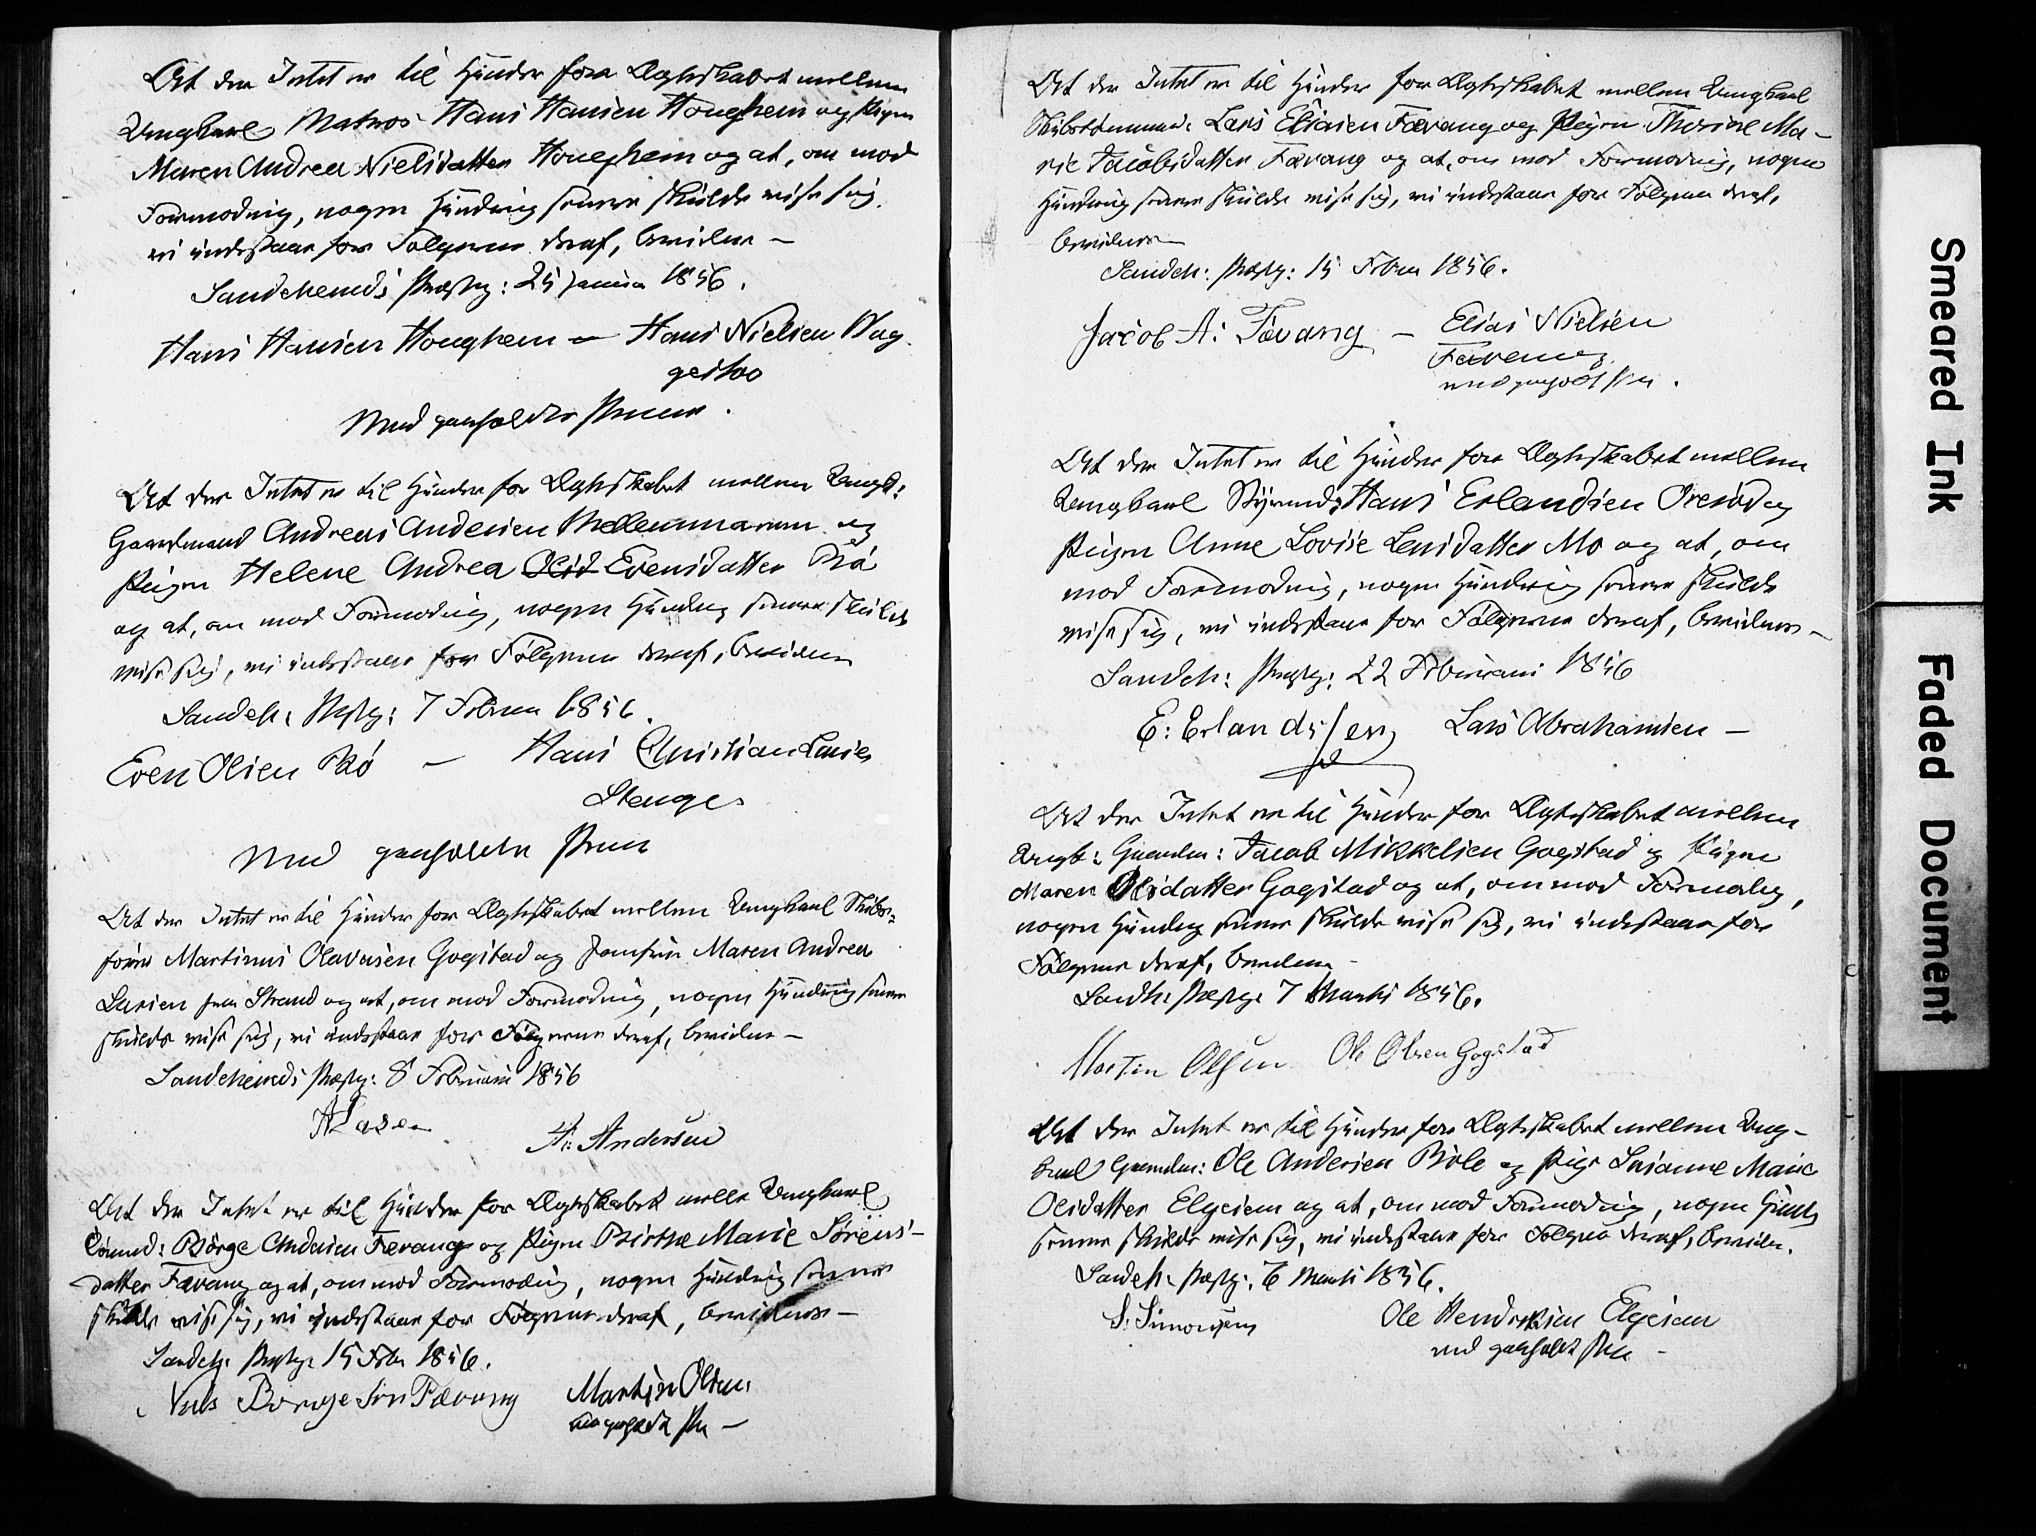 At der Intet er til Hinder for Ægteskabet mellem
Ungkarl Matros Hans Hansen Houghem og Pigen
Maren Andrea Nielsdatter Houghem og at, om mod
Formodning, nogen Hindring senere skulde vise sig,
vi indestaae for Følgerne deraf, bevidner –
Sandeherreds Præstg: 25 Januar 1856.
Hans Hansen Houghem – Hans Nielsen
Med paaholden Pen.
At der Intet er til Hinder for Ægteskabet mellem Ungk:
Gaardmand Andreas Andersen Mellemmarum og
Pigen Helene Andrea Olsd Evensdatter Rø
og at, om mod Formodning, nogen Hindring senere skulde
vise sig, vi indestaae for Følgerne deraf, bevidner
Sandeh: Præstg: 7 Februar 1856.
Even Olsen Rø – Hans Christian Larsen
Stenge
Med paaholden Pen
At der Intet er til Hinder for Ægteskabet mellem Ungkarl Skibs-
fører Martinus Olavesen Gogstad og Jomfru Maren Andrea
Larsen fra Strand og at, om mod Formodning, nogen Hindring senere
skulde vise sig, vi indestaae for Følgerne deraf, bevidner –
Sandeherreds Præstg: 8 Februar 1856
A Larsen A: Andersen
At der Intet er til Hinder for Ægteskabet mellem Ungkarl
Tømmd: Børge Andersen Fævang og Pigen Birthe Marie Sørens-
datter Fævang og at, om mod Formodning, nogen Hindring senere
skulde vise sig, vi indestaae for Følgerne deraf, bevidner –
Sandeh: Præstg: 15 Febr 1856.
Niels Børgesøn Fævang Martin Olsen
med paaholden Pen –
At der Intet er til Hinder for Ægteskabet mellem Ungkarl
Skibstømmermd: Lars Eliasen Fævang og Pigen Thorine Ma-
rie Jacobsdatter Fævang og at, om mod Formodning, nogen
Hindring senere skulde vise sig, vi indestaae for Følgerne deraf,
bevidner –
Sandeh: Præstg: 15 Febru 1856.
Jacob A: Fævang – Elias Nielsen
Fævang
med paaholden Pen.
At der Intet er til Hinder for Ægteskabet mellem
Ungkarl Styrmd: Hans Erlandsen Øresø og
Pigen Anne Lovise Larsdatter Mo og at, om
mod Formodning, nogen Hindring senere skulde
vise sig, vi indestaae for Følgerne deraf, bevidner –
Sandeh: Præstg: 22 Februari 1856
E: Erlandssen Lars Abrahamsen –
At der Intet er til Hinder for Ægteskabet mellem
Ungk: Gaardm: Jacob Mikkelsen Gogstad og Pigen
Maren Olsdatter Gogstad og at, om mod Formodng,
nogen Hindring senere skulde vise sig, vi indestaae for
Følgerne deraf, bevidner –
Sandh: Præstg: 7 Marts 1856.
Martin Olsen Ole Olsen Gogstad
At der Intet er til Hinder for Ægteskabet mellem Ung-
karl Gaardm: Ole Andersen Bøle og Pige Susanne Marie
Olsdatter Elgesem og at, om mod Formodning, nogen Hindrg
senere skulde vise sig, vi indestaae for Følgerne deraf, bevidner.
Sandeh: Præstg: 6 Marts 1856.
S: Simonsen Ole Hendriksen Elgesem
med paaholdt Pen –
Smeared Ink
Faded Document